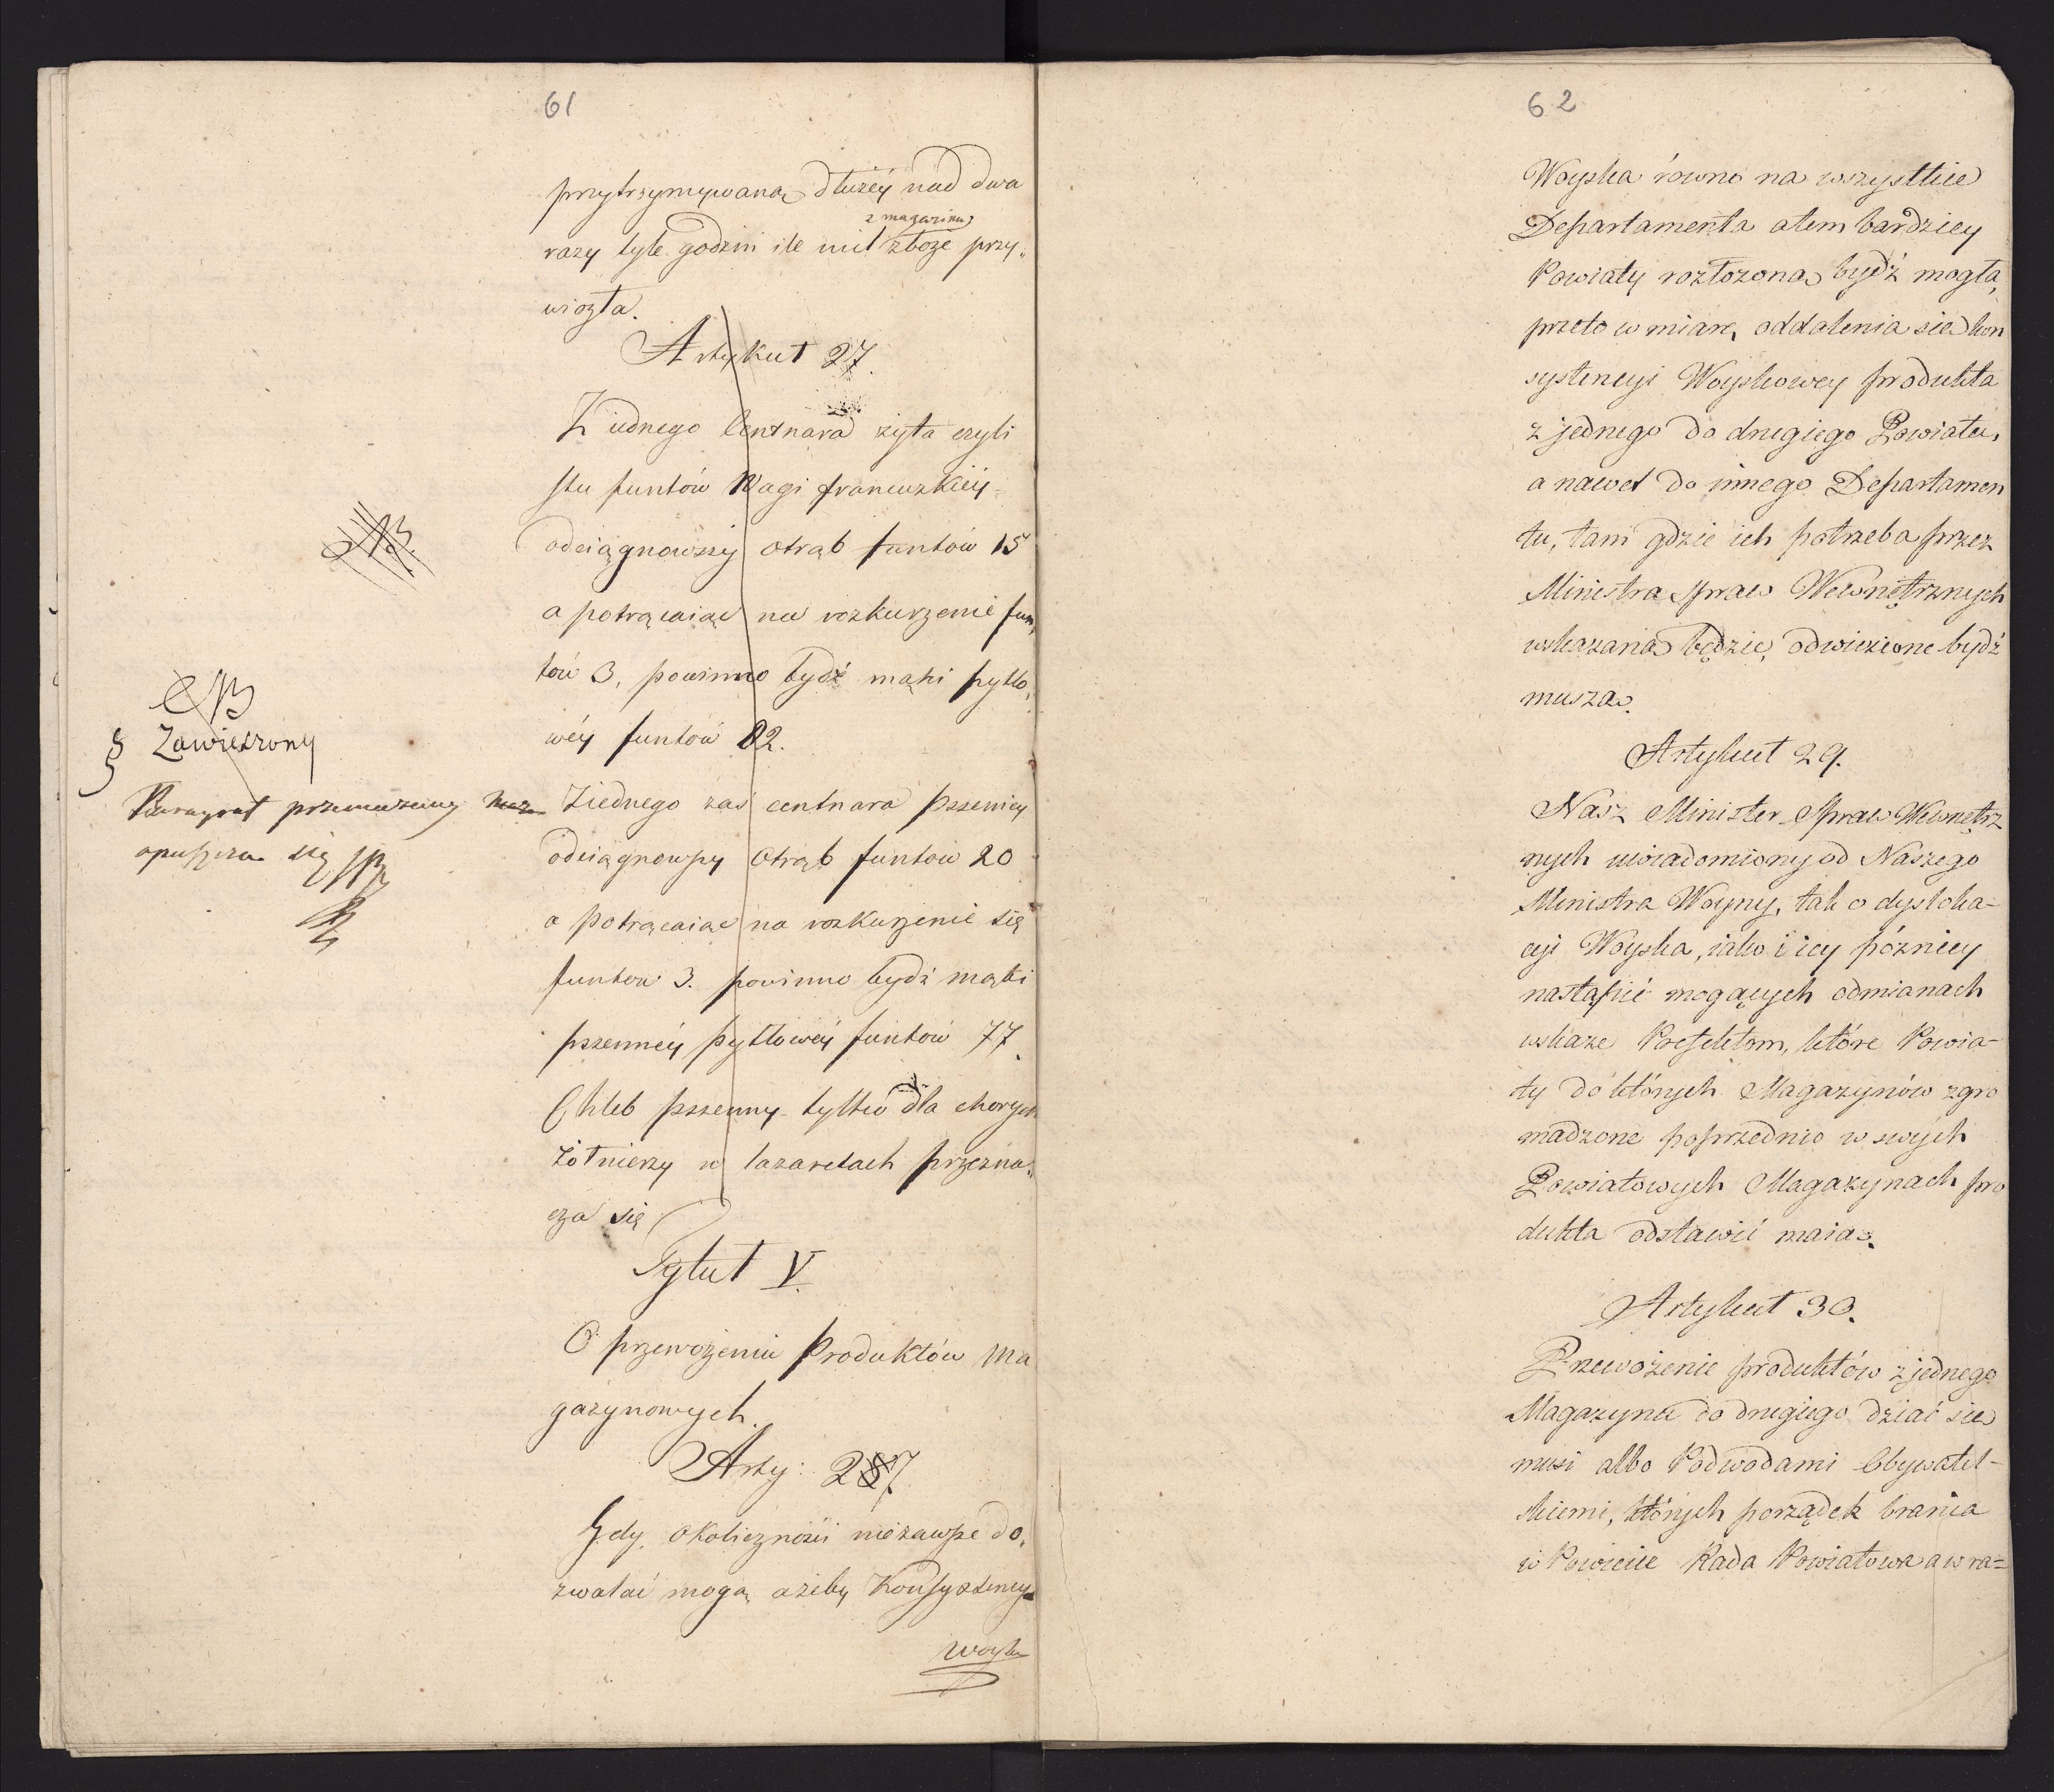 61
przytrzymywaną dłużéy nad dwa
z magazinu
razy tyle godzin ile mil zboże przy„
wiozła.
Artykuł 27.
Z iednego Centnara żyta czyli
stu funtów Wagi francuzkiéy
odciągnowszy otrąb funtów 15
a potrącaiąc na rozkurzenie fun„
tów 3, powinno bydź mąki pytlo„
wéy funtów 82.
NB
NB
§ Zawieszony
Paragraf przemazany
opuszcza się
Ziednego zaś centnara Pszenicy
odciągnowszy Otrąb funtów 20
a potrącaiąc na rozkurzenie się
funtow 3. powinno bydź mąki
pszennéy pytlowéy funtów 77.
Chleb pszenny tylko dla chorych
żołnierzy w lazaretach przezna„
cza się
Tytuł V.
O przewożeniu Produktów ma
gazynowych.
Arty: 287.
Gdy okoliczności niezawsze do„
zwalać mogą ażeby Konsystency
Woyska
62
Woyska równo na wszystkie
Departamenta a tem bardziey
Powiaty rozłożoną bydź mogła,
przeto w miarę oddalenia się kon
systencyi Woyskowey produkta
z jednego do drugiego Powiatu,
a nawet do innego Departamen
tu, tam gdzie ich potrzeba przez
Ministra Spraw Wewnętrznych
wskazaną będzie, odwiezione bydź
muszą.
Artykuł 29.
Nasz Minister Spraw Wewnętrz
nych uwiadomiony od Naszego
Ministra Woyny, tak o dysloka-
cyi Woyska, iako i iey pózniey
nastąpić mogących odmianach
wskaze Prefektom, które Powia-
ty do których Magazynów zgro
madzone poprzednio w swych
Powiatowych Magazynach pro
dukta odstawić maią.
Artykuł 30.
Przewożenie produktów z jednego
Magazynu do drugiego dziać się
musi albo Podwodami Obywatel-
skiemi, których porządek brania
w Powiecie Rada Powiatowa a w ra=